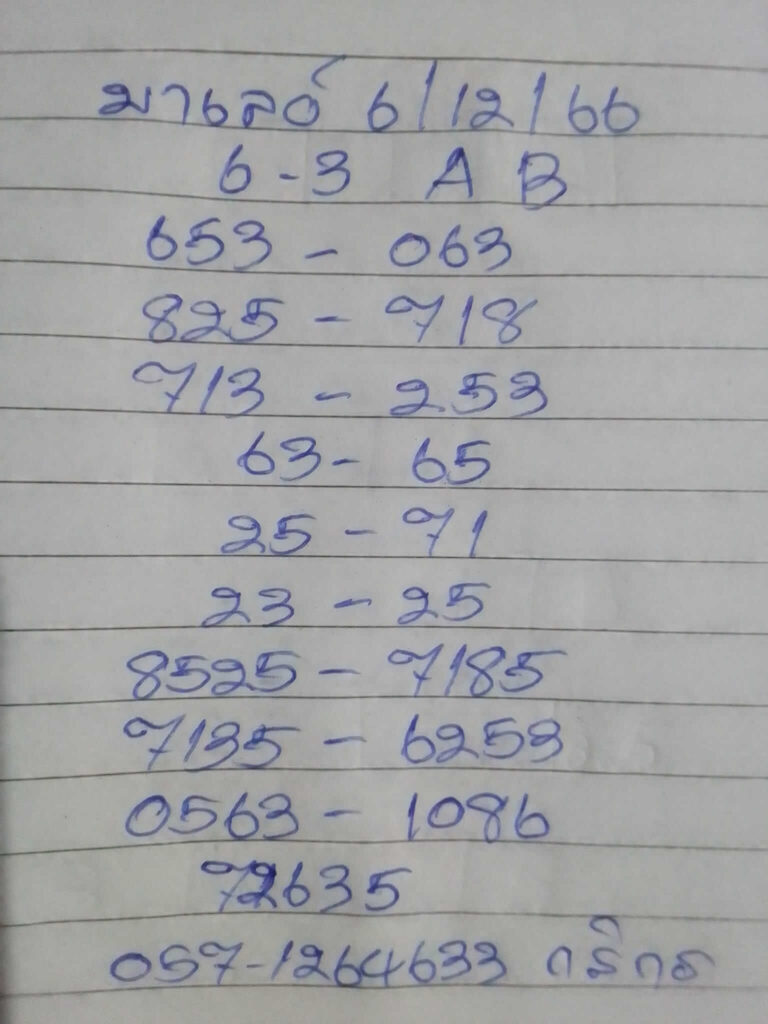 มาเลย์ 6/12/66
6-3 A B
653 - 063
825 - 718
713 - 253
63 - 65
25 - 71
23 - 25
8525 - 7185
7135 - 6253
0563 - 1086
72635
057-1264633 กสิกร